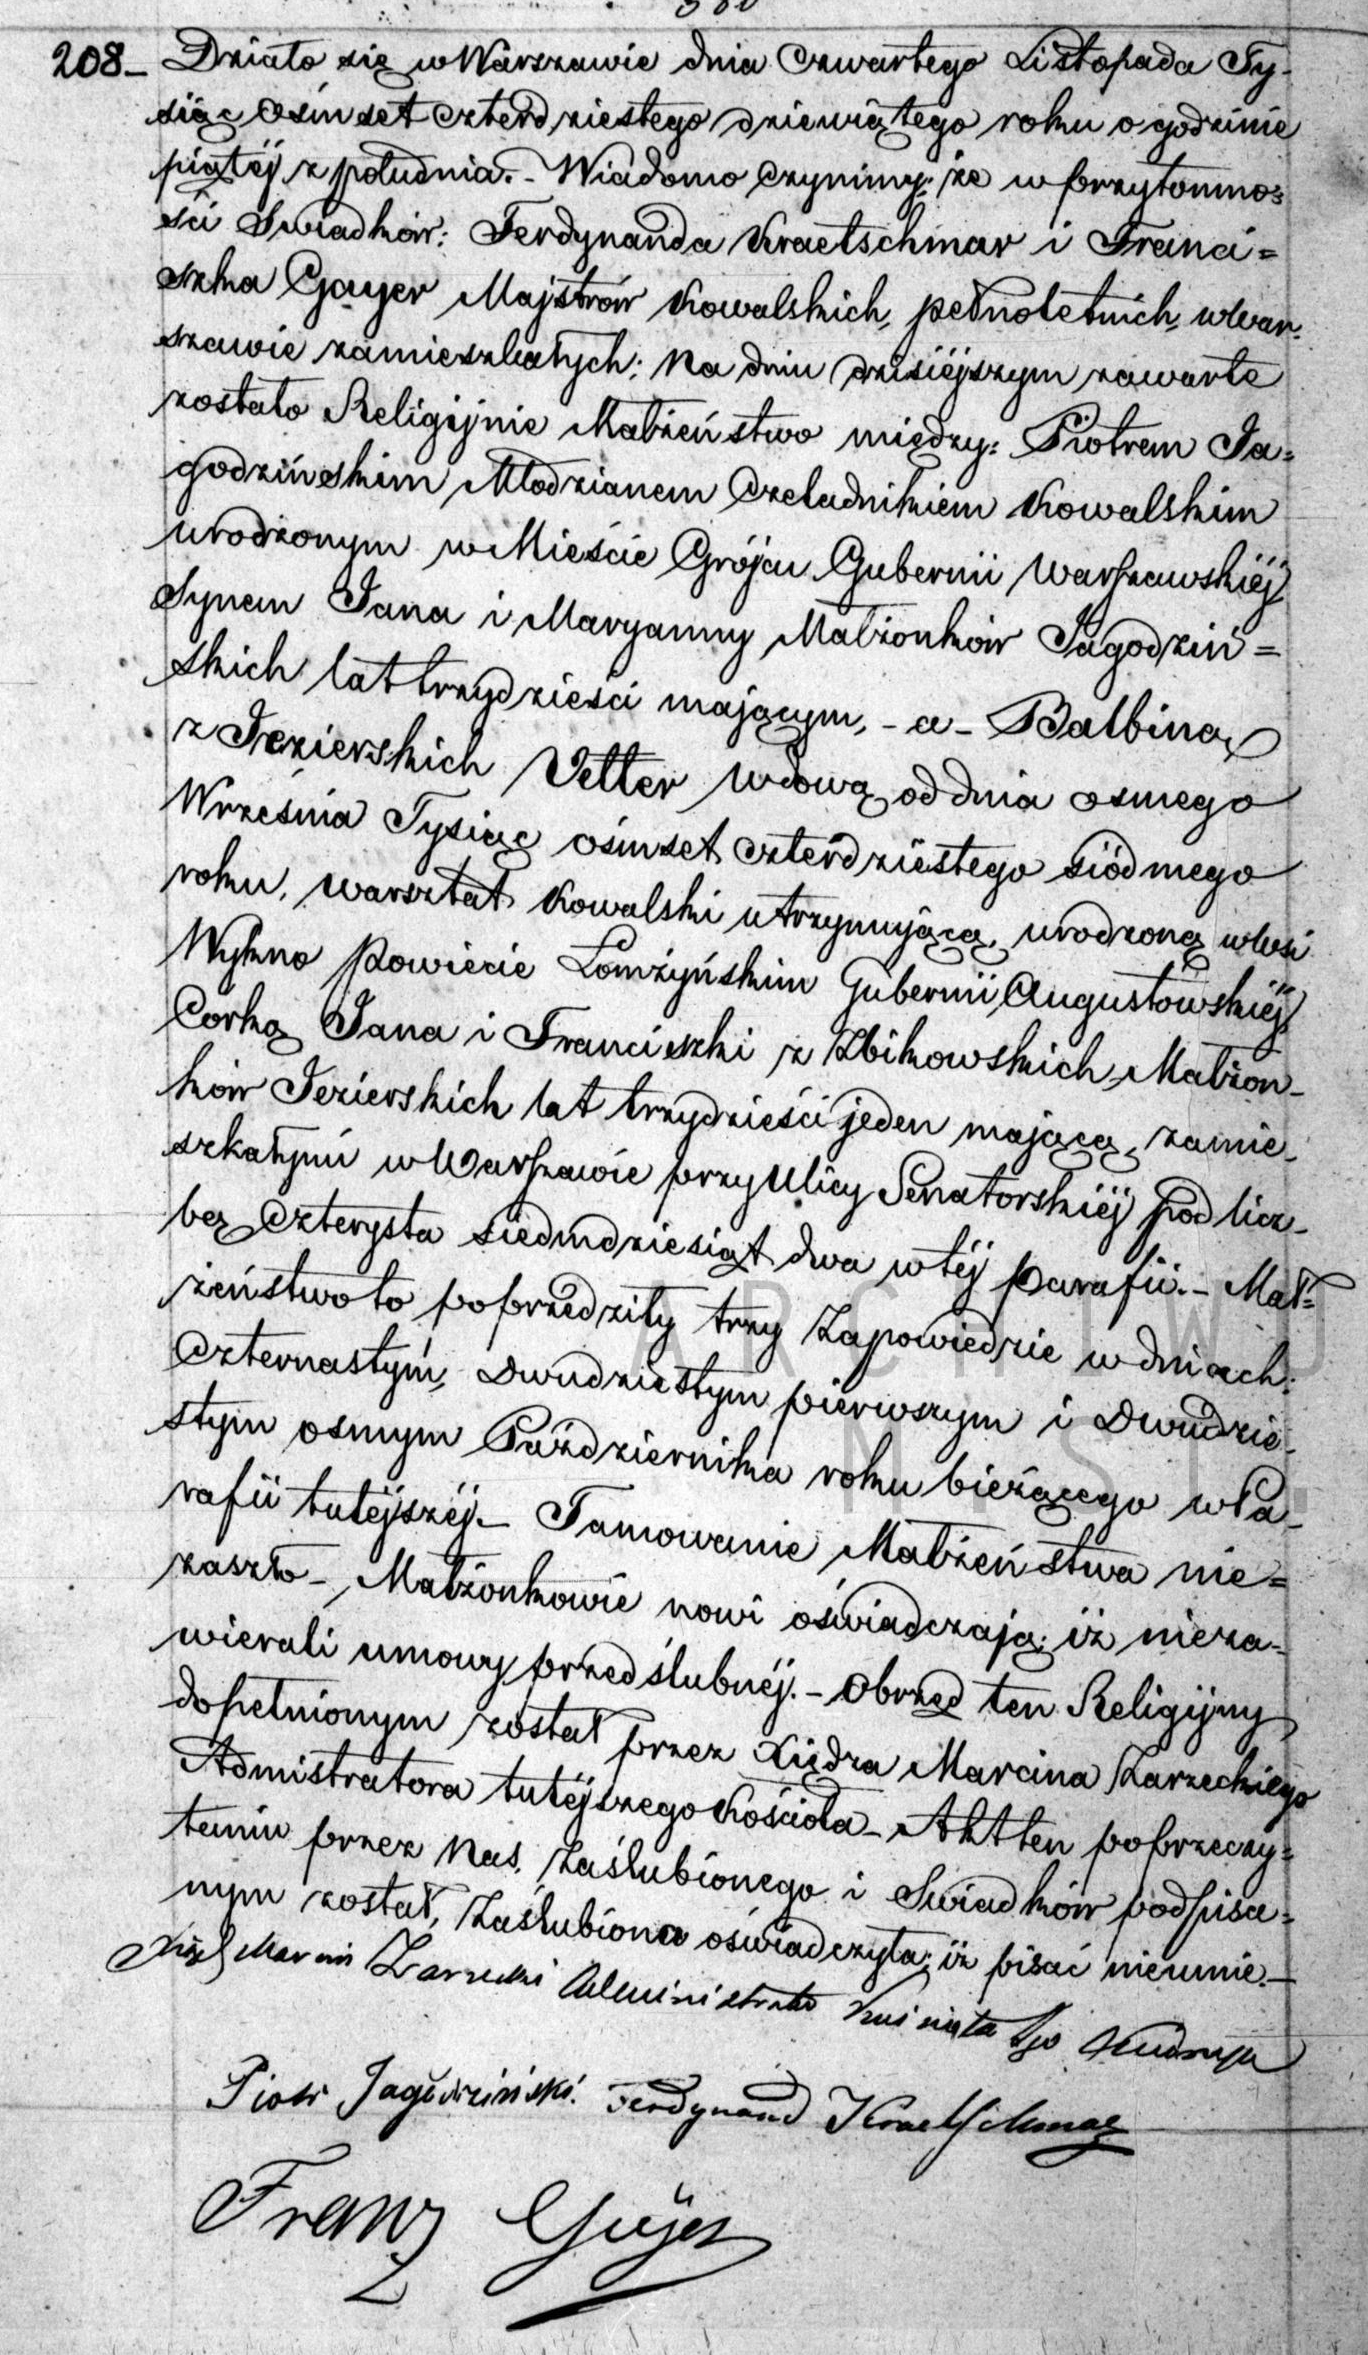 208_ Działo się w Warszawie dnia Czwartego Listopada Ty-
siąc Ośmset Czterdziestego dziewiątego roku o godzinie
piątéj z południa. - Wiadomo czynimy; że w przytomno=
ści Swiadków: Ferdynanda Kraetschmar i Franci=
szka Gayer Majstrów Kowalskich, pełnoletnich, w War-
szawie zamieszkałych; Na dniu dzisiéjszym zawarte
zostało Religijnie Małżeństwo między: Piotrem Ja=
godzińskim Młodzianem Czeladnikiem Kowalskim
urodzonym w Mieście Grójcu Gubernii Warszawskiéj
Synem Jana i Maryanny Małżonków Jagodziń=
skich lat trzydzieści mającym, - a - Balbiną
z Jezierskich Vetter wdową od dnia osmego
Września Tysiąc ośmset czterdziestego siódmego
roku, warsztat Kowalski utrzymującą, urodzoną we wsi
Wykno Powiecie Łomżyńskim Gubernii Augustowskiéj
Corką Jana i Franciszki z Zbikowskich Małżon-
ków Jezierskich lat trzydzieści jeden mającą, zamie-
szkałymi w Warszawie przy Ulicy Senatorskiéj pod licz-
bą Czterysta siedmdziesiąt dwa w téj parafii. - Mał=
żeństwo to poprzedziły trzy Zapowiedzie w dniach:
Czternastym, Dwudziestym pierwszym i Dwudzie-
stym osmym Października roku bieżącego w Pa-
rafii tutéjszéj. - Tamowanie Małżeństwa nie=
zaszło - Małżonkowie nowi oświadczają; iż nieza-
wierali umowy przedślubnéj. - Obrzęd ten Religijny
dopełnionym został przez Xiędza Marcina Zarzeckiego
Admistratora tutéjszego Kościoła - Akt ten po przeczy=
taniu przez Nas, Zaślubionego i Swiadków podpisa=
nym został, Zaślubiona oświadczyła; iż pisać nieumie. -
Xiądz Marcin Zarzecki Administrator Kościoła Sgo
Piotr Jagodziński. Ferdynand Kraetschmar
Franz Gayer
ARCHIWU
M ST.